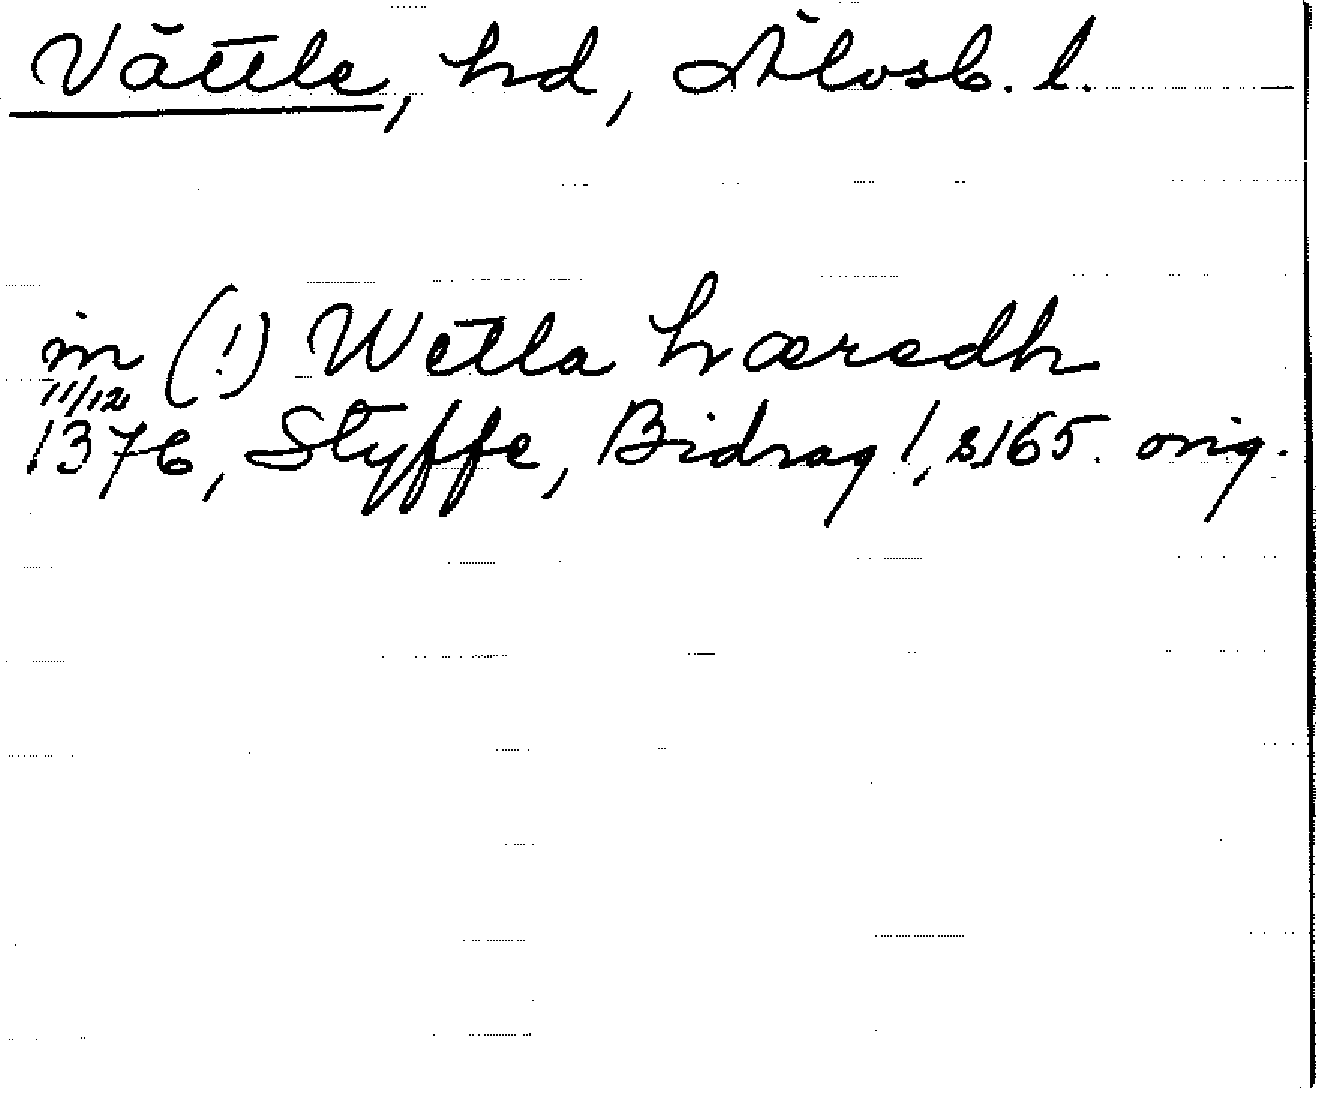 Vättle, hd, Älvsb. l.
im (!) Wetla hæredh
11/12
1376, Styffe, Bidrag 1, s165. orig.